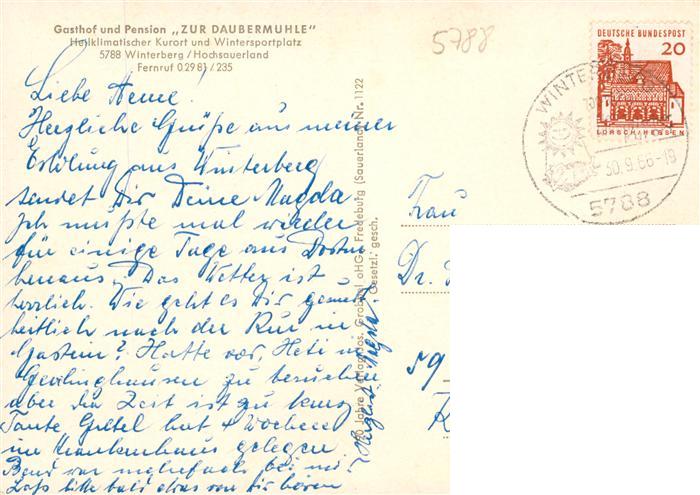 Gasthof und Pension „ZUR DAUBERMÜHLE"
Heilklimatischer Kurort und Wintersportplatz
5788 Winterberg / Hochsauerland
Fernruf 0 29 81 / 235
5788
DEUTSCHE BUNDESPOST
20
LORSCH/HESSEN
WINTERB
30.9.66-19
5788
Liebe
Herzliche Grüße aus meiner
Erholung aus Winterberg
sendet Dir Deine Magda
Ich müßte mal wieder
für einige Tage aus
heraus. Das Wetter ist
herrlich. Wie geht es Dir gesund-
heitlich nach der Kur in
Gastein? Hatte vor, Heti in
Gevlinghausen zu besuchen
aber die Zeit ist zu kurz
Tante Gretel hat 4 Wochen
im Krankenhaus gelegen
war mehrfach bei mir
Laß bitte bald etwas von Dir hören
Herzlichst Magda
Jahre Verlag Jos. Grobbel oHG, Fredeburg (Sauerland) Nr. 1122
Gesetzl. gesch.
Frau
Dr.
59
K